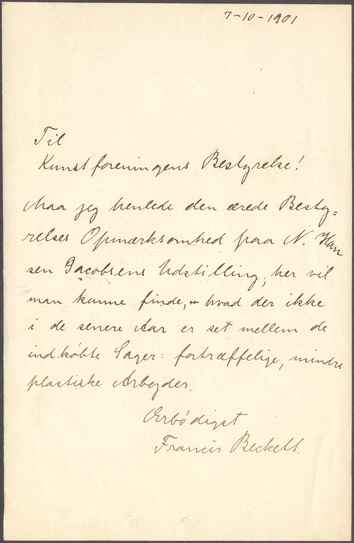 7-10-1901
Til
Kunstforeningens Bestyrelse!
Maa jeg henlede den ærede Besty=
relses Opmærksomhed paa N. Han
sen Jacobsens Udstilling; her vil
man kunne finde, – hvad der ikke
i de senere Aar er set mellem de
indkøbte Sager: fortræffelige, mindre
plastiske Arbejder.
Ærbødigst
Francis Beckett.